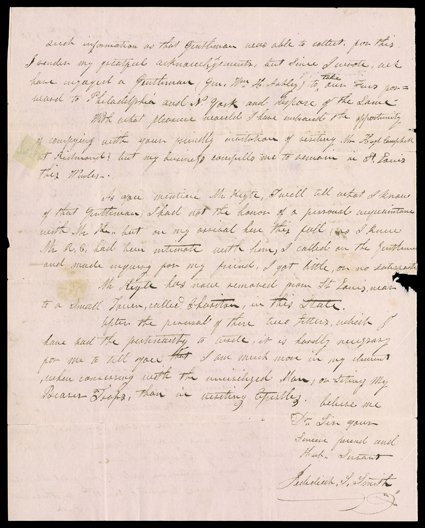 such information as that Gentleman was able to collect. for this
I render my greatful acknowledgements, but since I wrote, we
have engaged a Gentleman (Gn. Wm. H. Ashley) to take our Furs for-
ward to Philadelphia and N York and dispose of the Same
With what pleasure would I have embraced the opportunity
of complying with your friendly invitation of visiting Mr. Hugh Campbell
at Richmond; but my business compells me to remain in St Louis
this Winter.
As you mention Mr Keyte, I will tell what I know
of that Gentleman, I had not the honor of a personal acquaintance
with Mr. K. but on my arrival here this fall, as I knew
Mr R. C. had been intimate with him, I called on the Gentleman
and made inquiry for my friend, I got little, or no satisfaction
Mr Keyte has now removed from St. Louis, near
to a Small Town, called Charlton, in this State.
After the perusal of these two letters, which I
have had the pertinacity to write, it is hardly necessary
for me to tell you that I am much more in my element,
when conversing with the uncivilized Man, or Setting My
Beaver Traps, than in writing Epistles. believe me
Dr. Sir your
Sincere friend and
Hub. Servant
Jedediah S. Smith